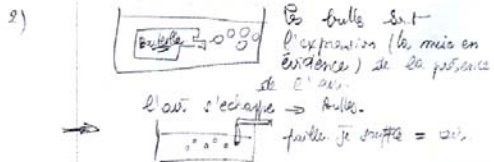 2)
Bouteille
les bulles sont
l'expression (la mise en
évidence) de la présence
de l'air.
l'air s'échappe ⇒ bulles.
→
paille je souffle = air